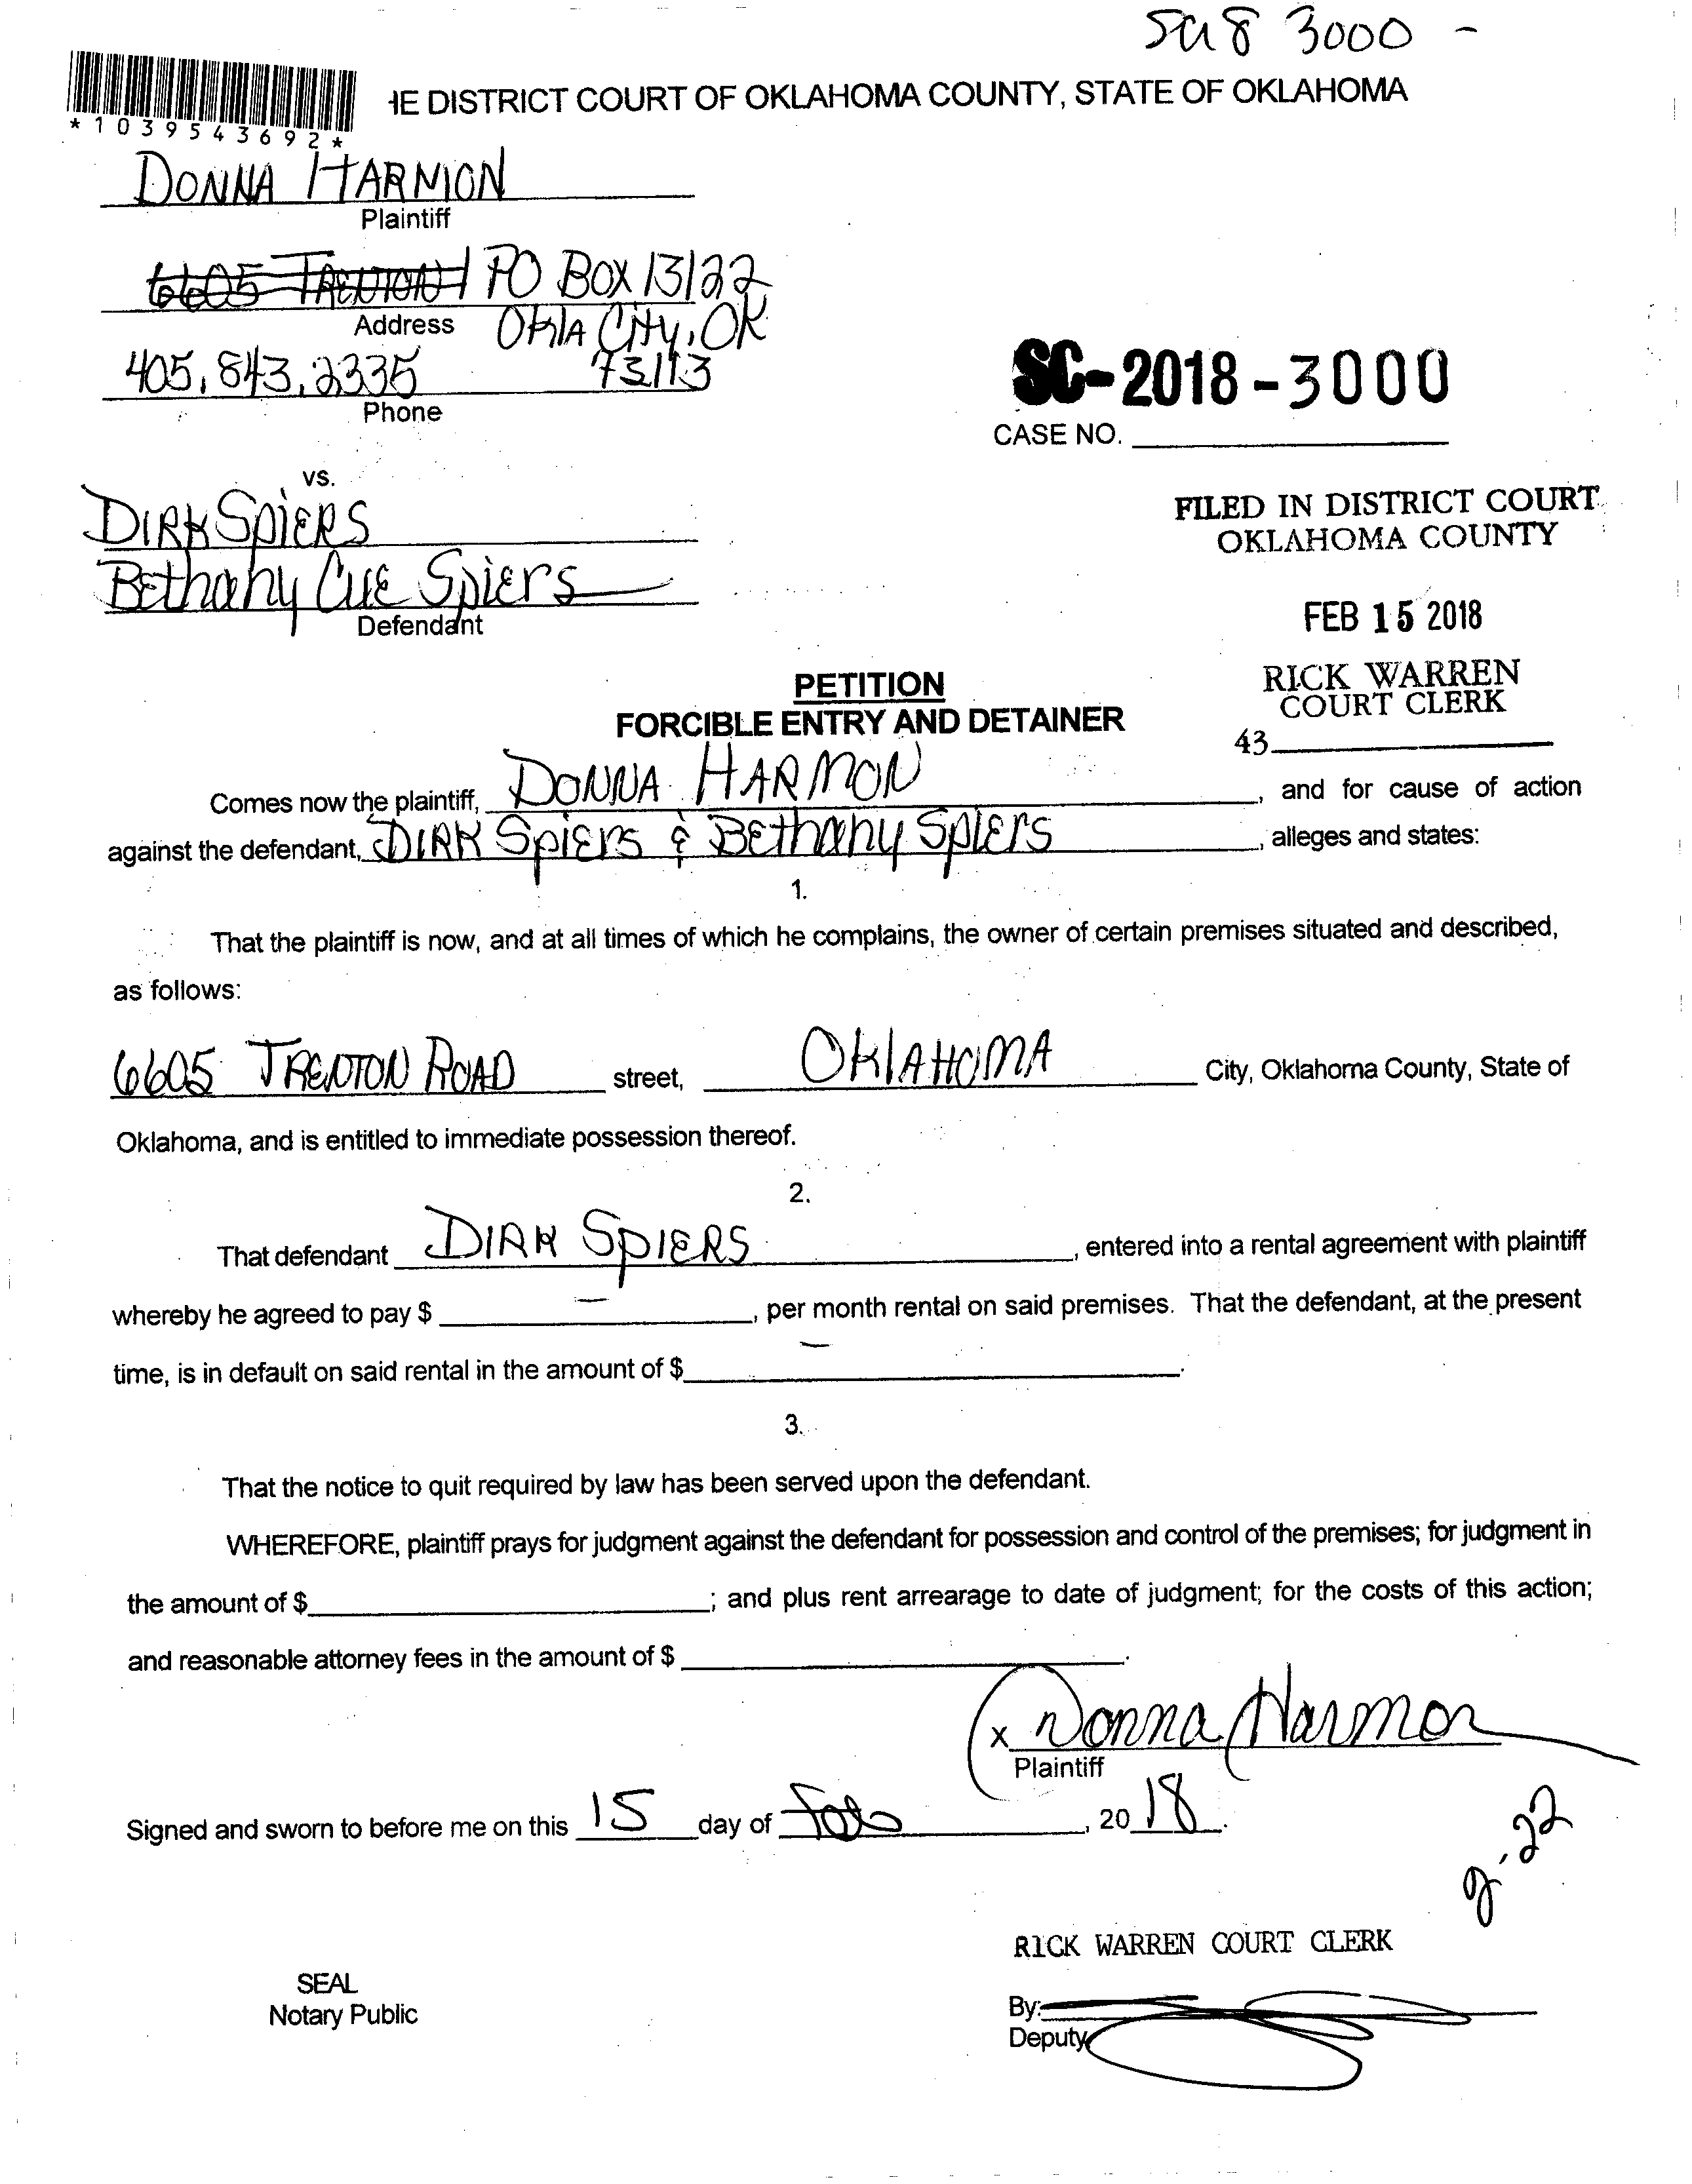 SC18 3000 -
*1039543692*
HE DISTRICT COURT OF OKLAHOMA COUNTY, STATE OF OKLAHOMA
DONNA HARMON
Plaintiff
6605 TRENTON PO BOX 13122
Address OKLA CITY, OK
405.843.2335 73113
Phone
SC-2018-3000
CASE NO.
vs.
DIRK SPIERS
Bethany Cue Spiers
Defendant
FILED IN DISTRICT COURT
OKLAHOMA COUNTY
FEB 15 2018
RICK WARREN
COURT CLERK
43
PETITION
FORCIBLE ENTRY AND DETAINER
Comes now the plaintiff, DONNA HARMON, and for cause of action
against the defendant, DIRK Spiers & BEthany Spiers, alleges and states:
1.
That the plaintiff is now, and at all times of which he complains, the owner of certain premises situated and described,
as follows:
6605 TRENTON ROAD street, OKLAHOMA City, Oklahoma County, State of
Oklahoma, and is entitled to immediate possession thereof.
2.
That defendant DIRK SPIERS, entered into a rental agreement with plaintiff
whereby he agreed to pay $ —, per month rental on said premises. That the defendant, at the present
time, is in default on said rental in the amount of $ —.
3.
That the notice to quit required by law has been served upon the defendant.
WHEREFORE, plaintiff prays for judgment against the defendant for possession and control of the premises; for judgment in
the amount of $; and plus rent arrearage to date of judgment; for the costs of this action;
and reasonable attorney fees in the amount of $.
x Donna Harmon
Plaintiff
Signed and sworn to before me on this 15 day of Feb, 2018.
2-22
RICK WARREN COURT CLERK
SEAL
Notary Public
By:
Deputy